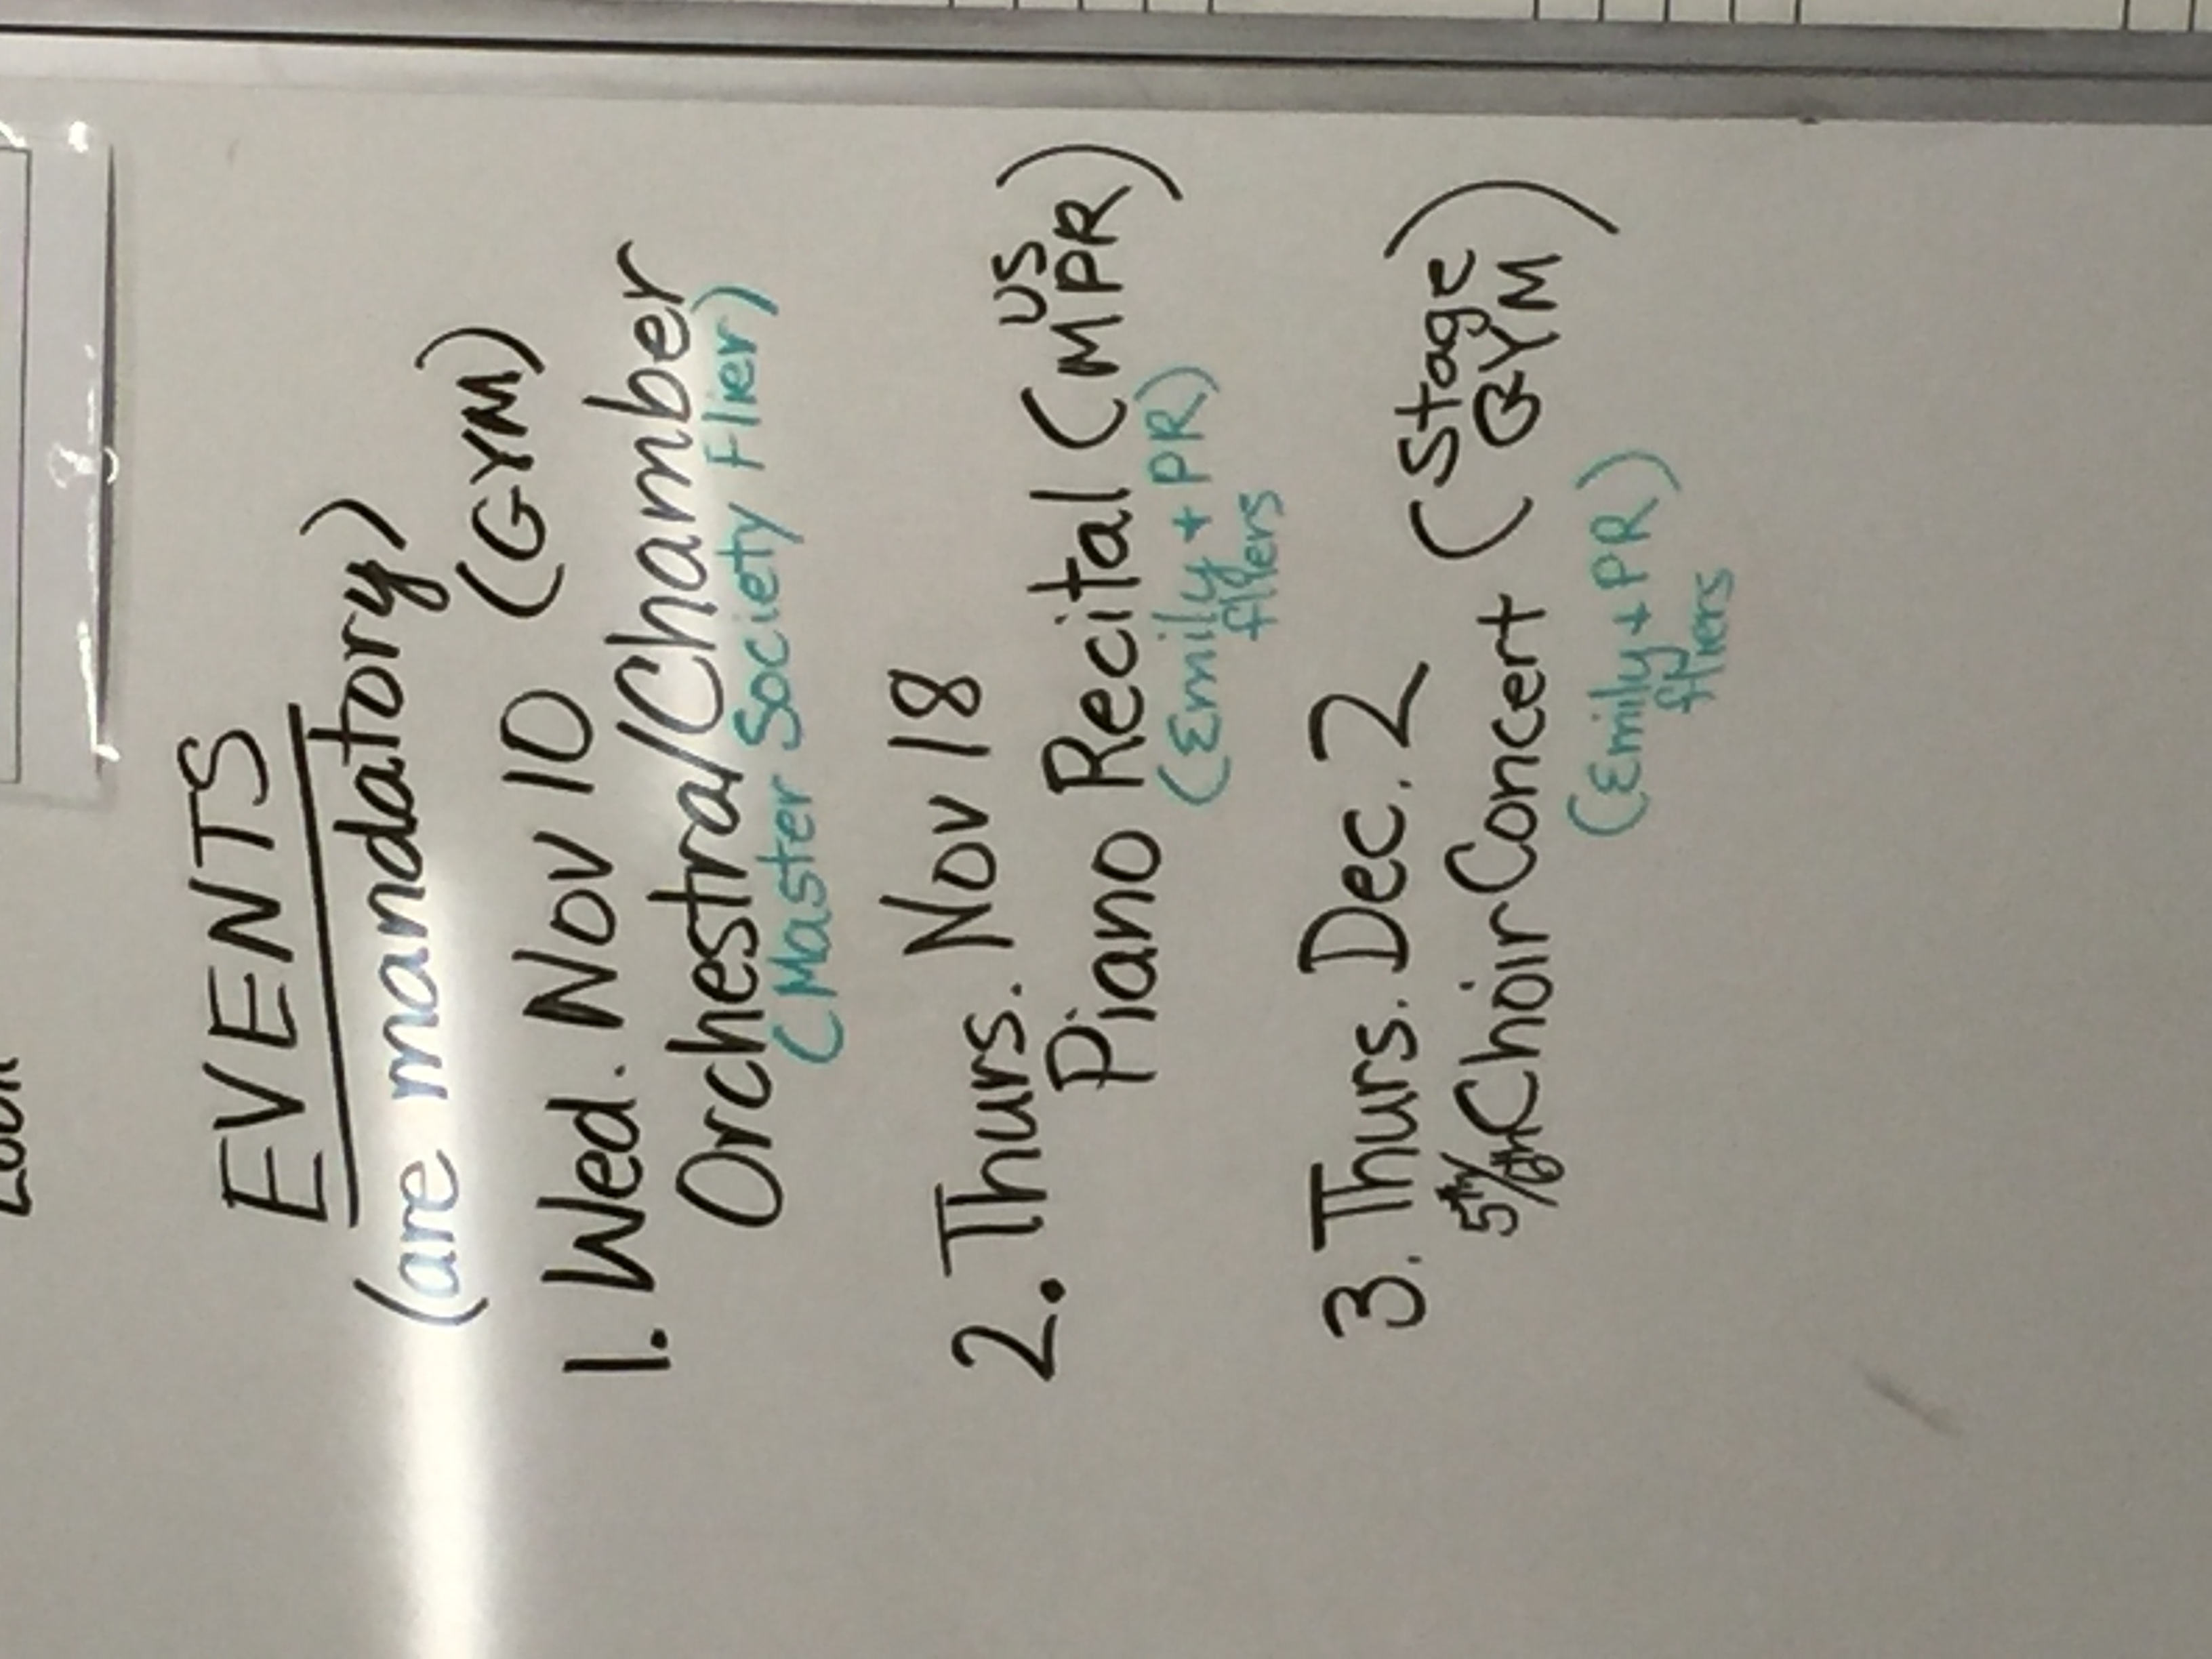 EVENTS
(are mandatory)
1. Wed. Nov 10 (GYM)
Orchestral/Chamber
(Master Society Flier)
2. Thurs. Nov 18
Piano Recital (US MPR)
(Emily + PR)
fliers
3. Thurs. Dec. 2
5th/ Choir Concert (Stage GYM)
(Emily + PR)
fliers